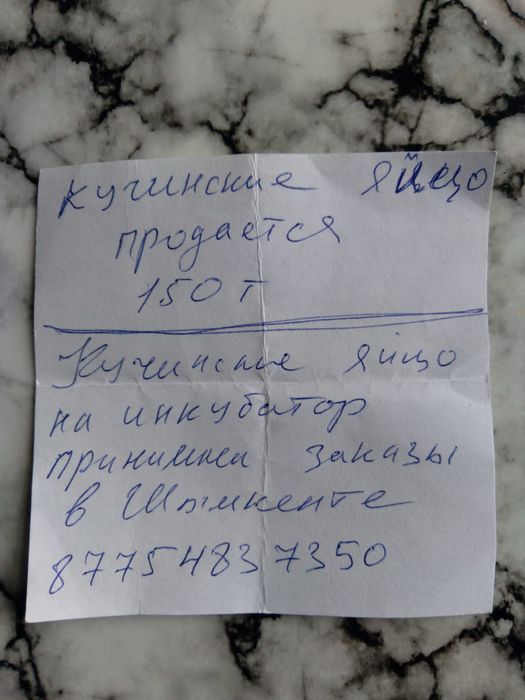 кучинские яйцо
продается
150 т
Кучинские яйцо
на инкубатор
принимаем заказы
в Шымкенте
87754837350